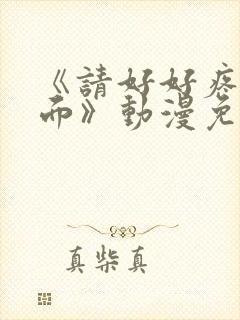 《請好好疼
而》動漫免
真柴真